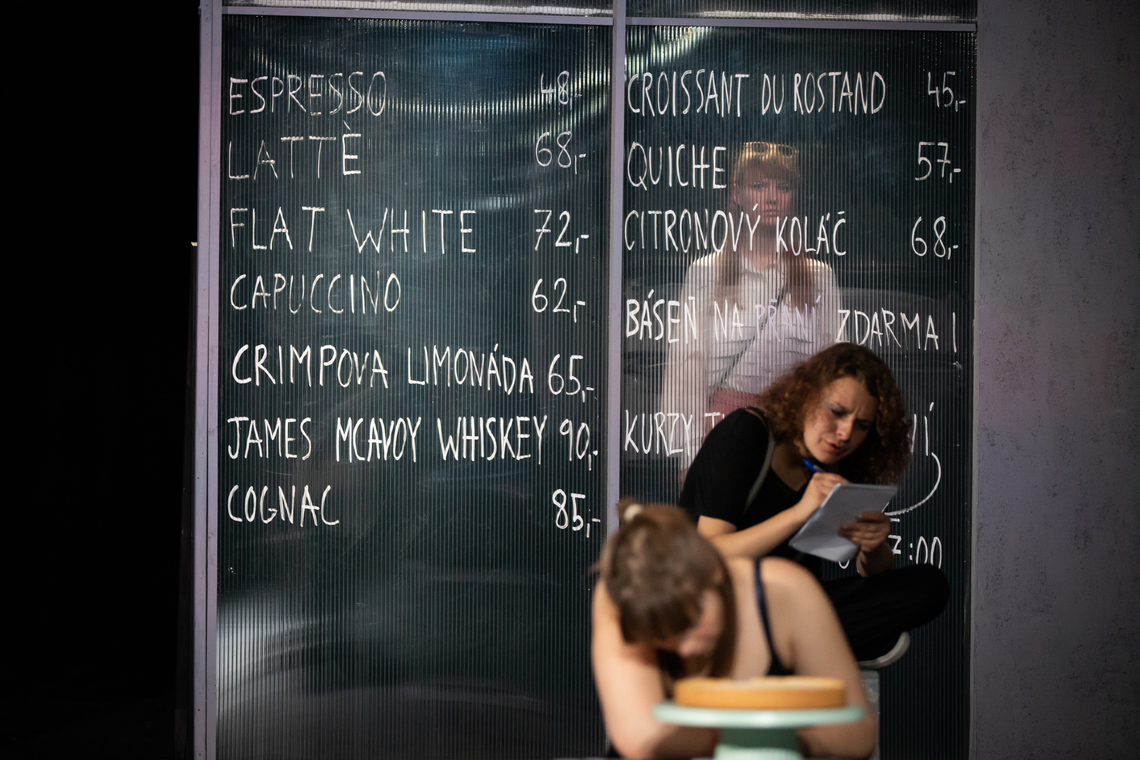 ESPRESSO 48
LATTÈ 68,-
FLAT WHITE 72,-
CAPUCCINO 62,-
CRIMPOVA LIMONÁDA 65,-
JAMES MCAVOY WHISKEY 90,-
COGNAC 85,-
CROISSANT DU ROSTAND 45,-
QUICHE 57,-
CITRONOVÝ KOLÁČ 68,-
BÁSEŇ NA PŘÁNÍ ZDARMA!
KURZY
:00